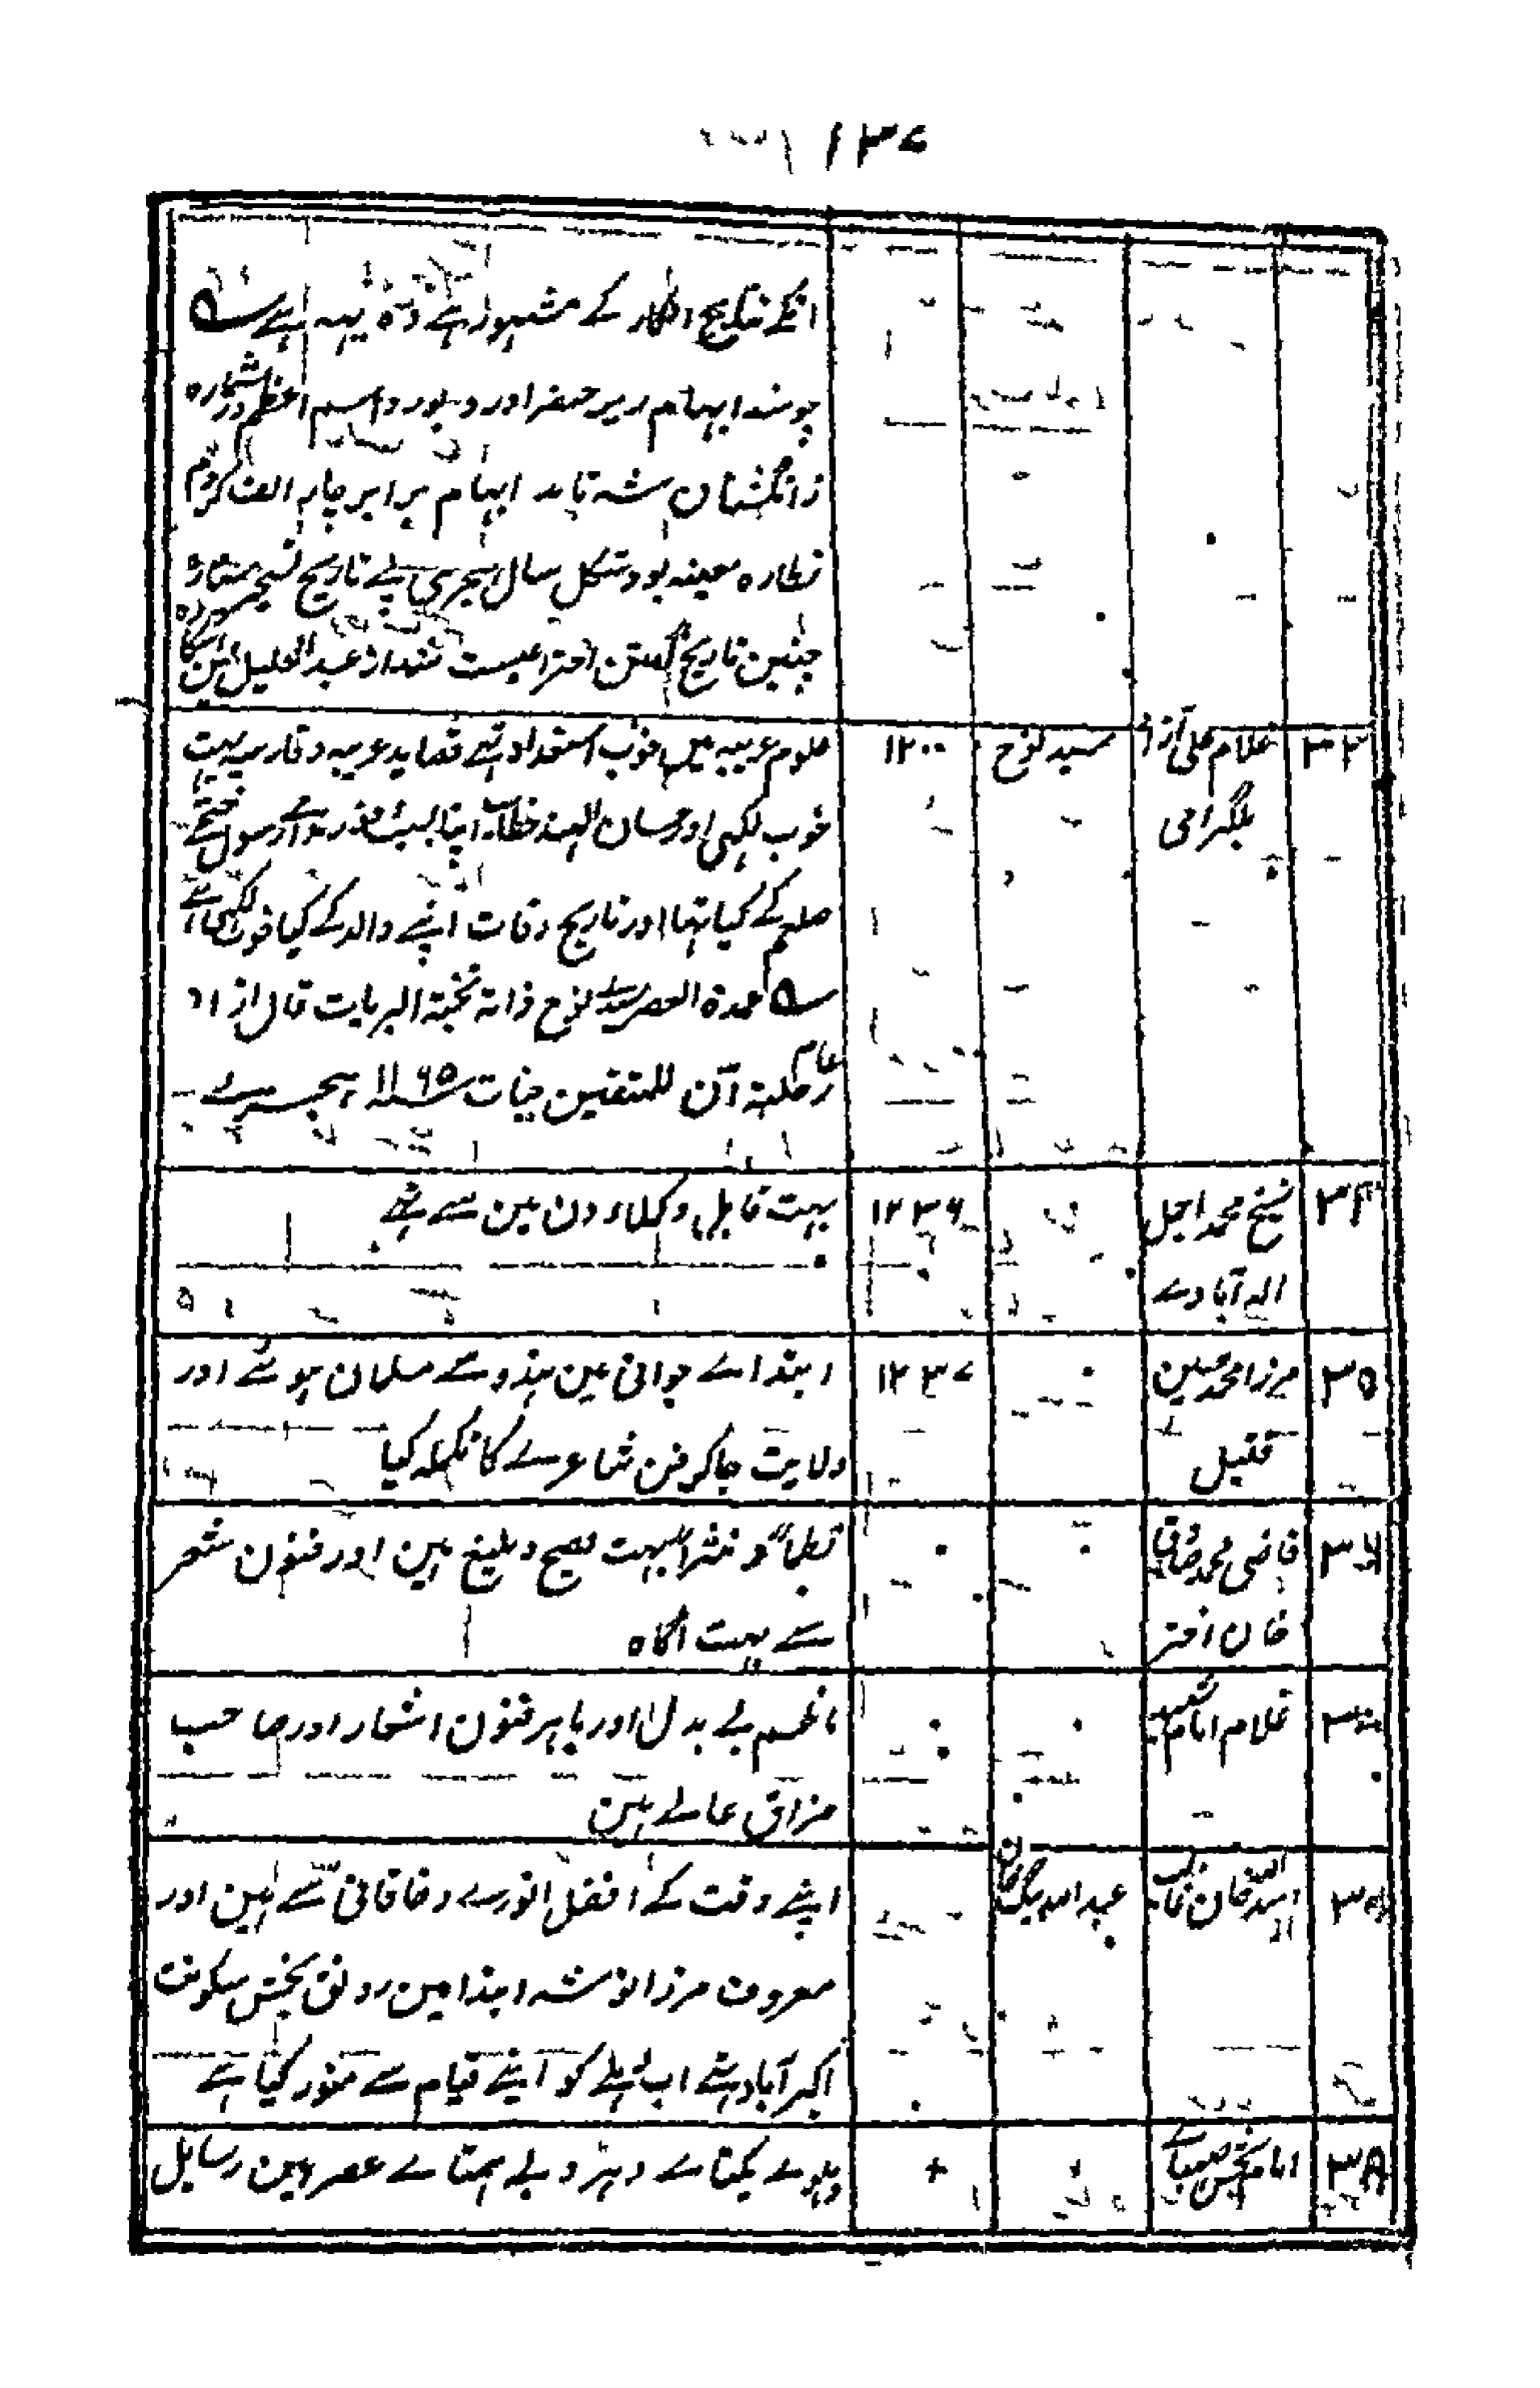 ۱۳۷
انکے نتایج افکار کے مشہور ہے وہ یہہ ہے
چو شد ابہام بر خنصر اور در اسم اعظم در شماره
ز انگشتان شد ابہام برابر چار الف کردم
نظاره معینہ بود شکل سال ہجری پئے تاریخ
چنین تاریخ گفتن اختراعیست شد از عبد الجلیل این
۳۳ غلام علی آزاد سید نوح ۱۲۰۰ علوم عربیہ میں خوب استعداد تھے قصاید عربیہ و فارسیہ بہت
بلگرامی خوب لکہی اور حسان الہند خطاب اپنا بسبب
صلعم کے کیا تہا اور تاریخ وفات اپنے والد کے کیا خوب لکہی ہے
عمدة العصر سیدے نوح ذاته نخبة البریات قال آزاد
عام رحلته آن للمتقین جنات سنہ ۱۱۶۵ ہجرے
۳۴ شیخ محمد اجمل ۱۲۳۶ بہت قابل و کملاء دن مین سے تہے
الہ آبادے
۳۵ مرزا محمد حسین ۱۲۳۷ ابتداے جوانی مین ہندو سے مسلمان ہوئے اور
قتیل ولایت جاکر فن شاعرے کا تکملہ کیا
۳۶ قاضی محمد صادق نظماً و نثراً بہت فصیح و بلیغ ہین اور فنون شعر
خان اختر سے بہت آگاہ
۳۷ غلام امام شہید ناظم بے بدل اور ماہر فنون اشعار اور صاحب
مزاق عالے ہین
اسد اللہ خان غالب عبد اللہ بیگ خان اپنے وقت کے افضل انورے و خاقانی سے ہین اور
معروف مرزا نوشہ ابتدا مین رونق بخش سکونت
اکبرآباد تہے اب دہلے کو اپنے قیام سے منور کیا ہے
۳۸ امام بخش صہبائے + دہلوے یکتاے دہر و بے ہمتاے عصر ہین رسایل